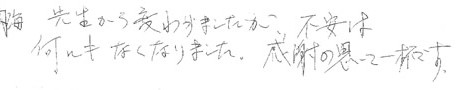 先生から変わりましたが、不安は
何もなくなりました。感謝の思いで一杯です。